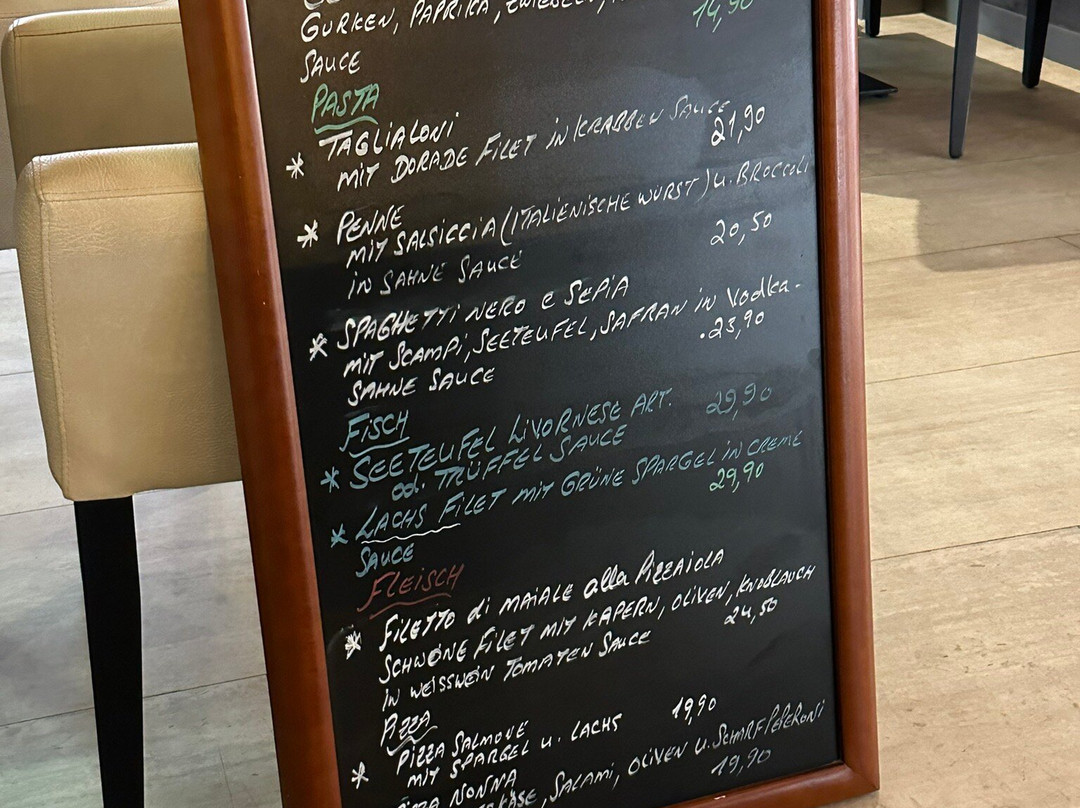 GURKEN, PAPRIKA, ZWIEBELN,
14,90
SAUCE
PASTA
* TAGLIALONI
MIT DORADE FILET IN KRABBEN SAUCE
21,90
* PENNE
MIT SALSICCIA (ITALIENISCHE WURST) U. BROCCOLI
IN SAHNE SAUCE 20,50
* SPAGHETTI NERO e SEPIA
MIT SCAMPI, SEETEUFEL, SAFRAN IN Vodka-
SAHNE SAUCE .23,90
FISCH
* SEETEUFEL LIVORNESE ART. 29,90
od. TRÜFFEL SAUCE
* LACHS FILET MIT GRÜNE SPARGEL IN CREME
SAUCE 29,90
FLEISCH
* FILETTO di MAIALE alla PIZZAIOLA
SCHWÖNE FILET MIT KAPERN, OLIVEN, KNOBLAUCH
IN WEISSWEIN TOMATEN SAUCE 24,50
PIZZA
* PIZZA SALMONE
MIT SPARGEL U. LACHS 19,90
NONNA
KÄSE, SALAMI, OLIVEN U. SCHARF PEPERONI
19,90